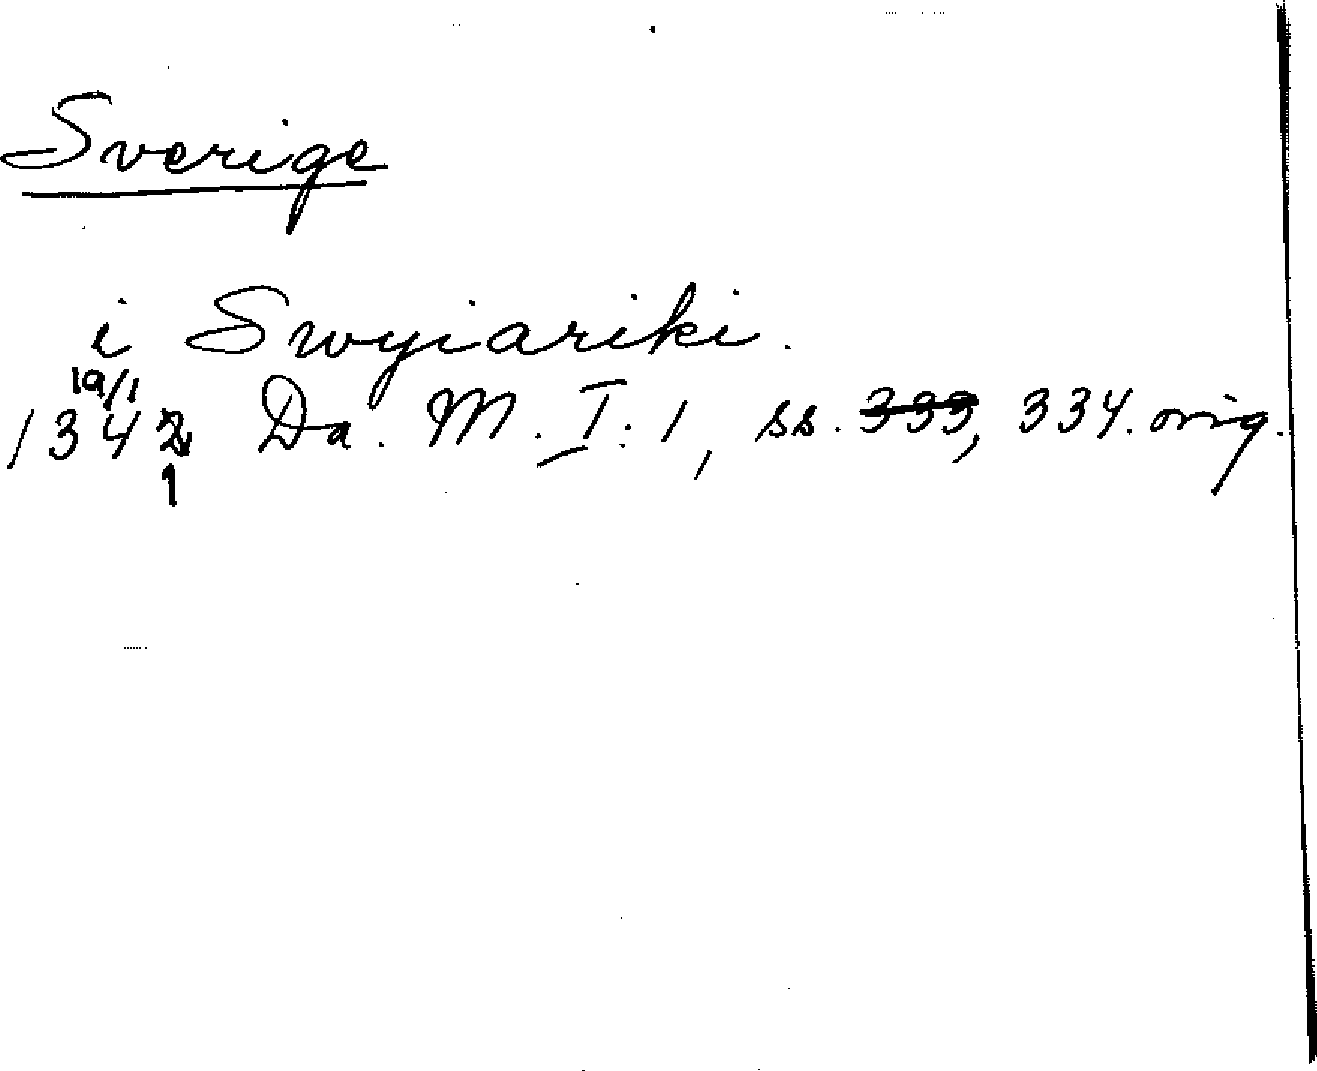 Sverige
i Swyiariki.
19/1
1341 Da. M. I: 1, ss. 333, 334. orig.